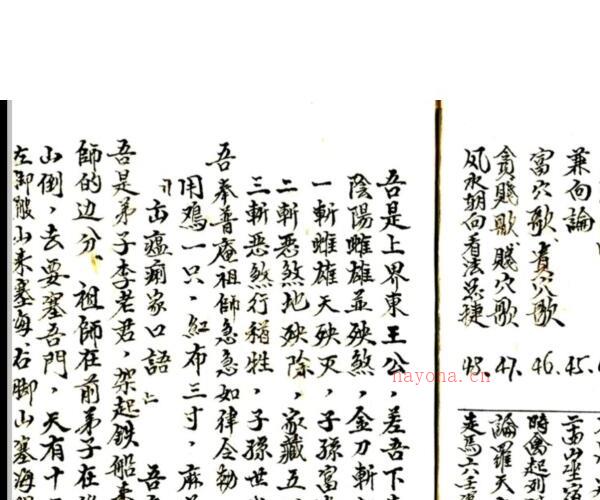 兼向論
45.
富穴歌、貴穴歌
46.
貪賤歌、賤穴歌
47.
风水朝向看法总捷
48.
時禽起列
論羅天
走馬六壬
吾是上界東王公，差吾下
陰陽雌雄並殃煞，金刀斬
一斬雌雄天殃灭，子孫富
二斬恶煞地殃除，家藏五
三斬恶煞行穑牲，子孫世
吾奉普庵祖師急急如律令勅
用鸡一只，红布三寸，麻
出瘟痢家口語
吾是弟子李老君，架起鉄船
師的边分、祖師在前弟子在
山倒，去要塞吾門，天有十
左脚陂山来塞海，右脚山塞海
nayona.cn